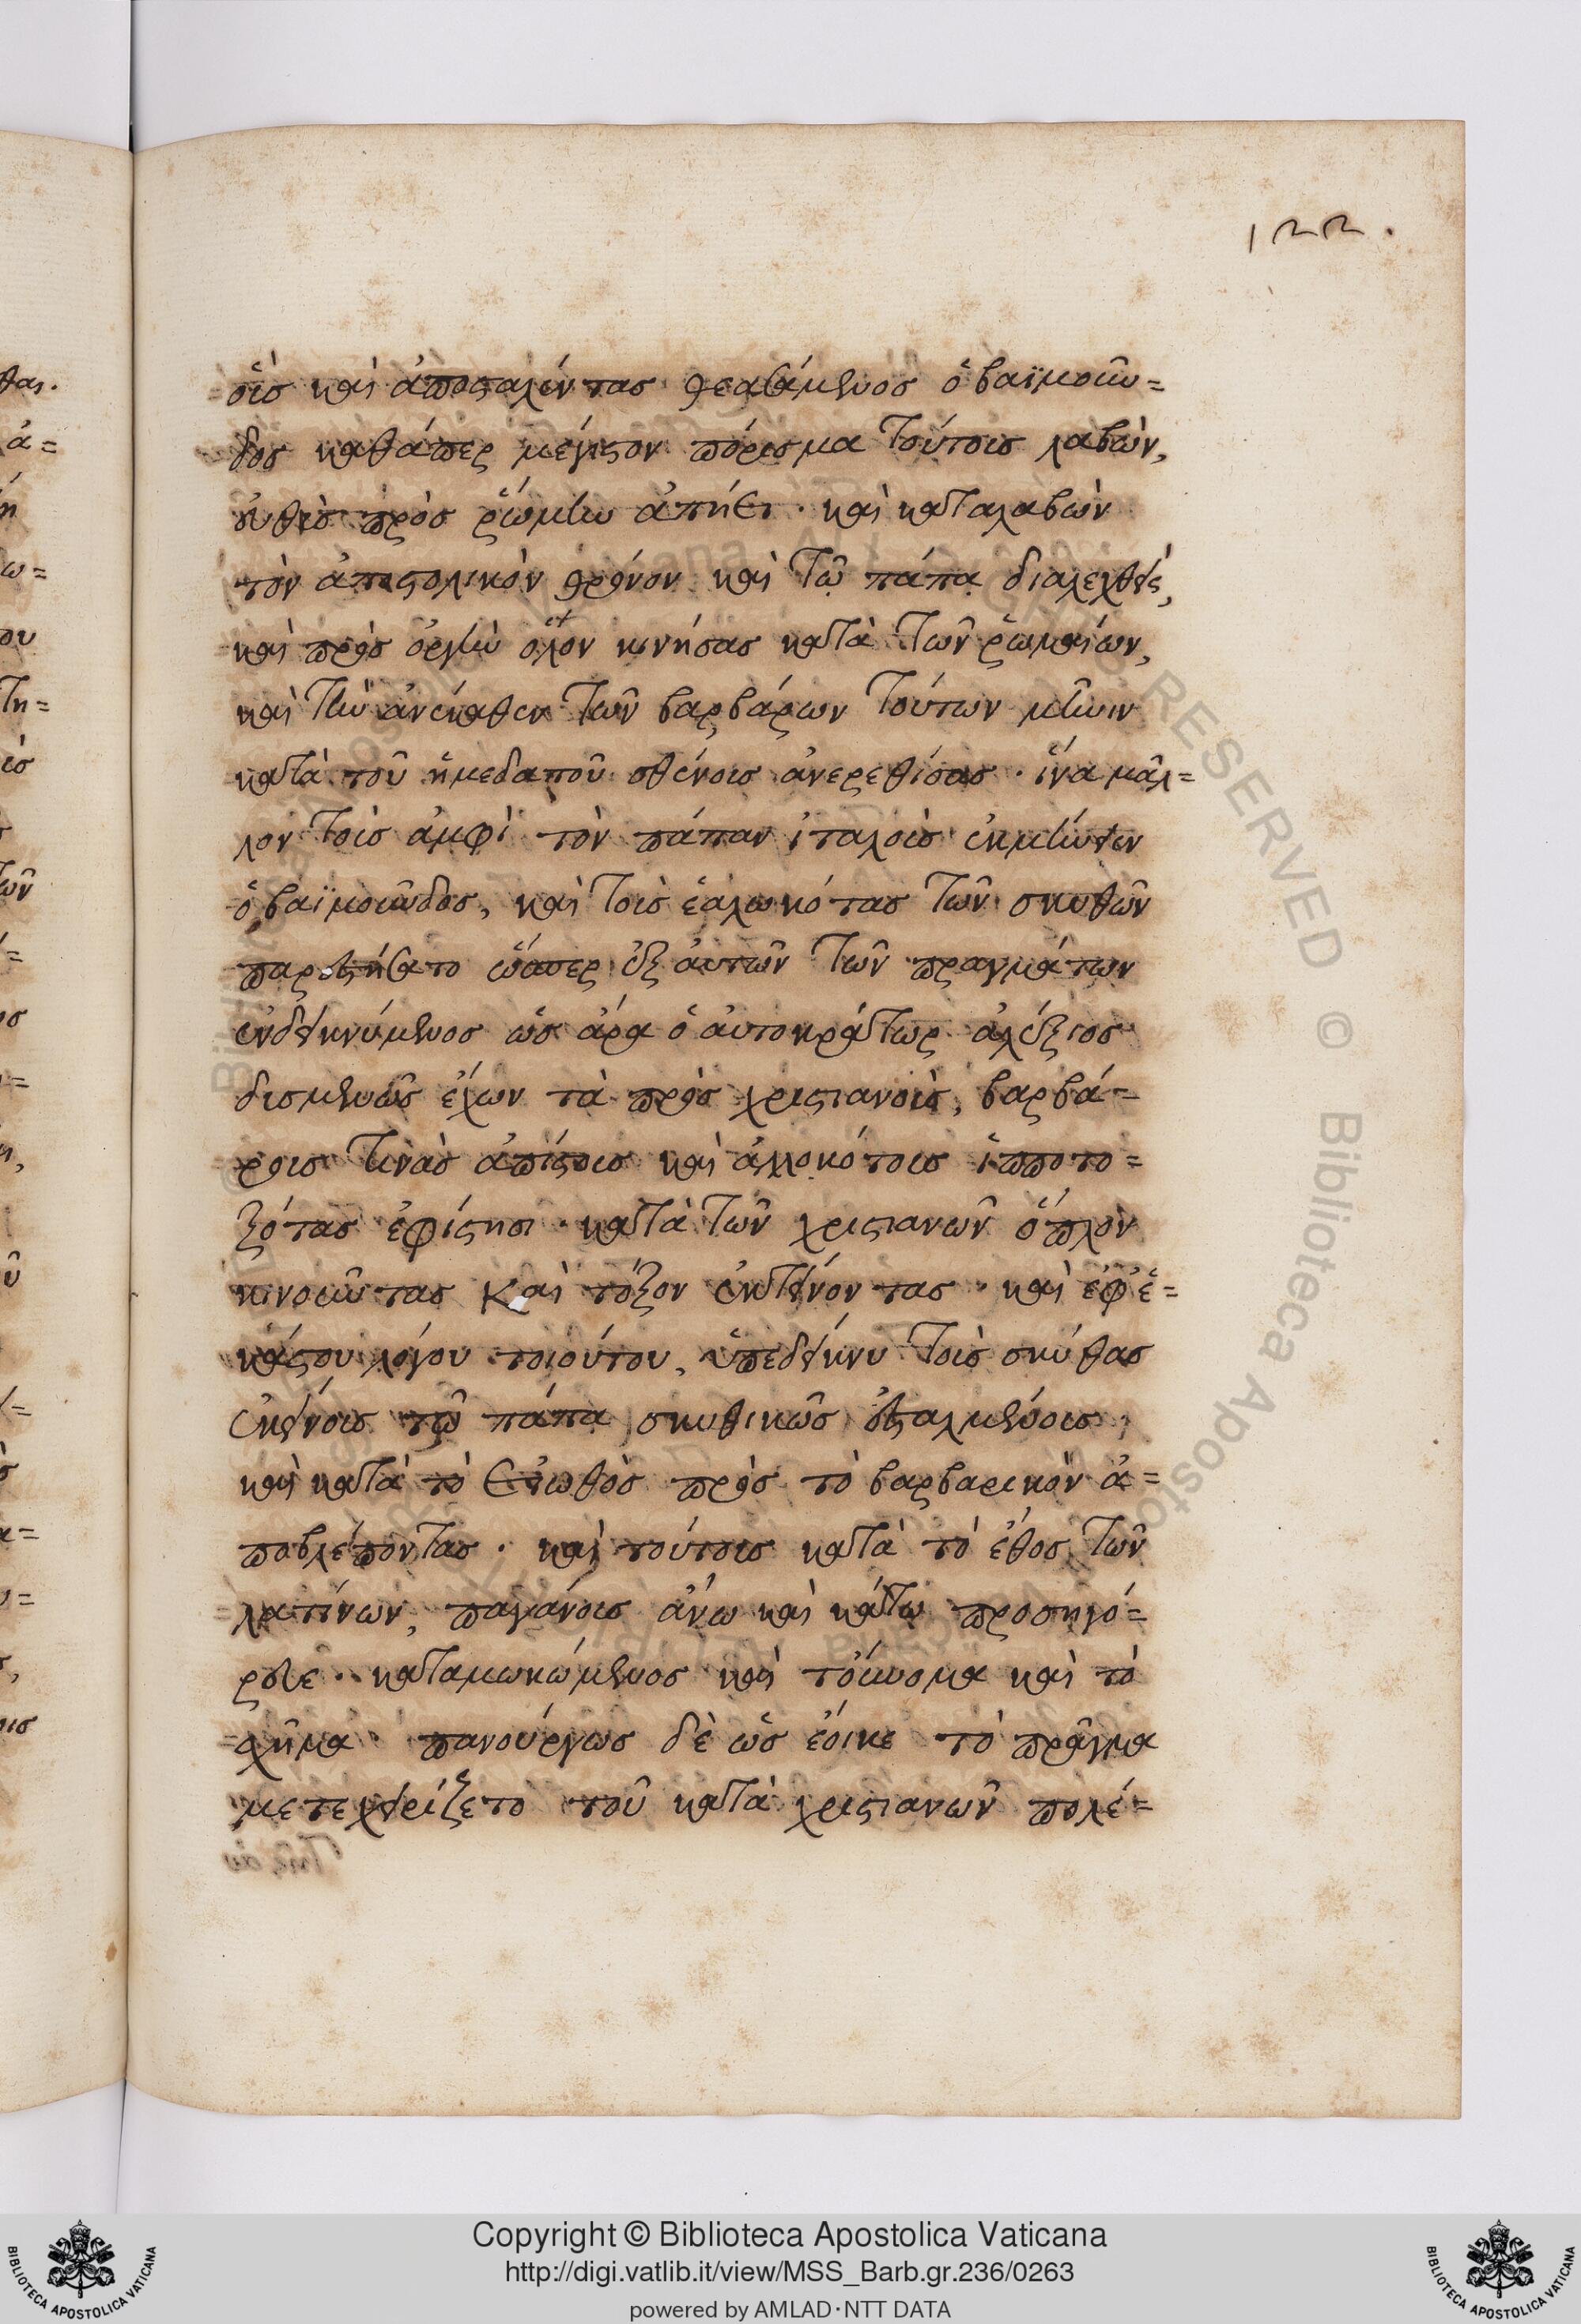 122.
οὓς καὶ ἀποσταλέντας θεασάμενος ὁ βαϊμοῦν=
δος καθάπερ μέγιστον πόρισμα τούτους λαβὼν,
εὐθὺς πρὸς ῥώμην ἀπήει · καὶ καταλαβὼν
τὸν ἀποστολικὸν θρόνον καὶ τῶ πάπα διαλεχθεὶς,
καὶ πρὸς ὀργὴν ὅλον κινήσας κατὰ τῶν ῥωμαίων,
καὶ τὴν ἀνέκαθεν τῶν βαρβάρων τούτων μῆνιν
κατὰ τοῦ ἡμεδαποῦ σθένους ἀνερεθίσας · ἵνα μᾶλ=
λον τοὺς ἀμφὶ τὸν πάπαν ἰταλοὺς ἐκμήνειεν
ὁ βαϊμοῦνδος, καὶ τοὺς ἑαλωκότας τῶν σκυθῶν
παρεστήσατο ὥσπερ ἐξ αὐτῶν τῶν πραγμάτων
ἐνδεικνύμενος ὡς ἄρα ὁ αὐτοκράτωρ ἀλέξιος
δυσμενῶς ἔχων τὰ πρὸς χριστιανοὺς, βαρβά=
ρους τινὰς ἀπίστους καὶ ἀλλοκότους ἱπποτο=
ξότας ἐφίστησι · κατὰ τῶν χριστιανῶν ὅπλον
κινοῦντας καὶ τόξον ἐκτείνοντας · καὶ ἐφ' ἑ=
κάστου λόγου τοιούτου, ὑπεδείκνυ τοὺς σκύθας
ἐκείνους τῶ πάπα σκυθικῶς ἐσταλμένους
καὶ κατὰ τὸ εἰωθὸς πρὸς τὸ βαρβαρικὸν ἀ=
ποβλέποντας · καὶ τούτους κατὰ τὸ ἔθος τῶν
λατίνων, παγάνους ἄνω καὶ κάτω προσηγό=
ρευε · καταμωκώμενος καὶ τοὔνομα καὶ τὸ
σχῆμα · πανούργως δὲ ὡς ἔοικε τὸ πρᾶγμα
μετεχειρίζετο τοῦ κατὰ χριστιανῶν πολέ=
Copyright © Biblioteca Apostolica Vaticana
http://digi.vatlib.it/view/MSS_Barb.gr.236/0263
powered by AMLAD·NTT DATA